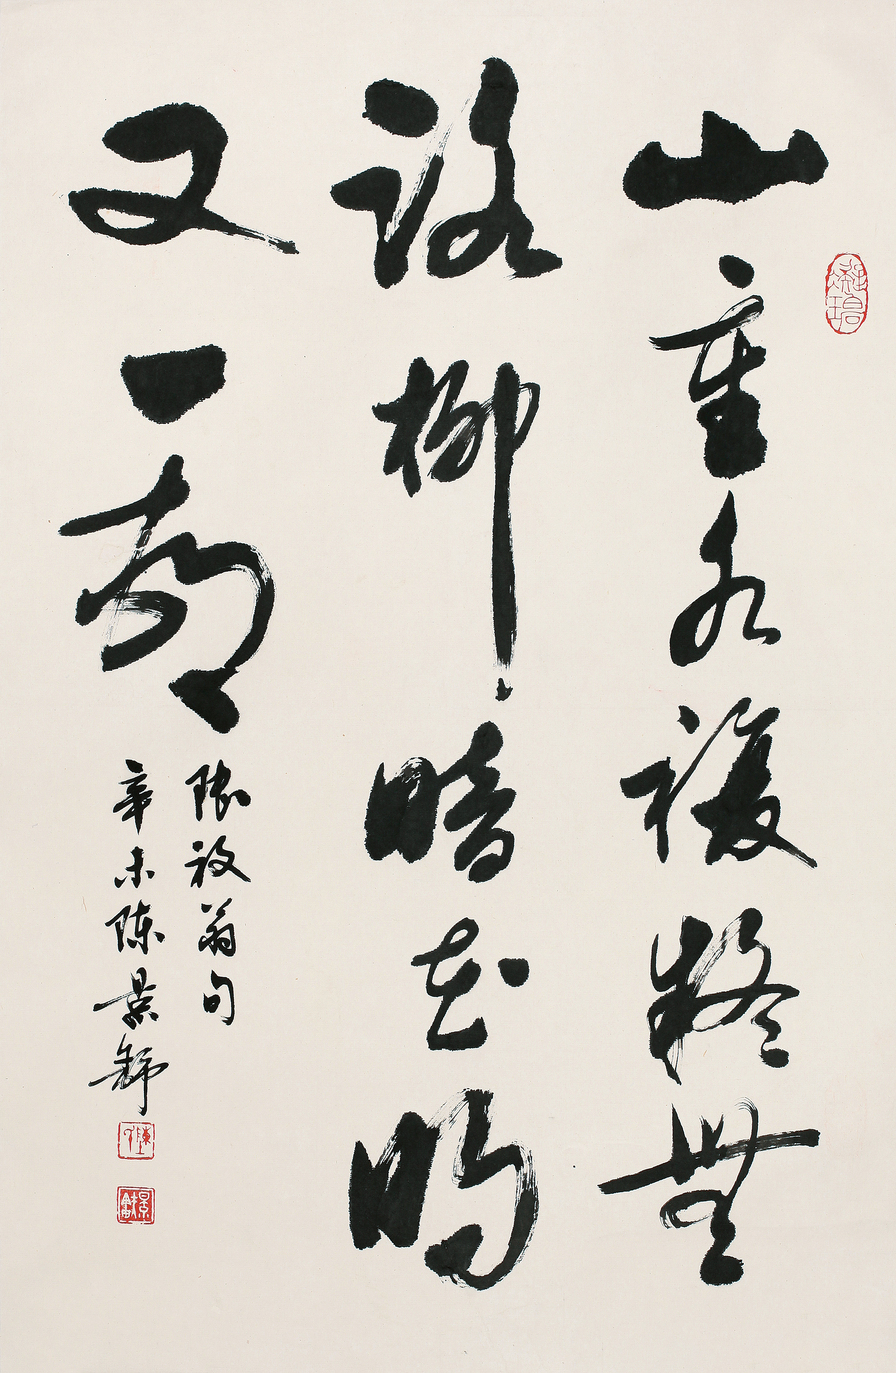 山重水複疑無
路柳暗花明
又一邨
陸放翁句
辛未陳景舒